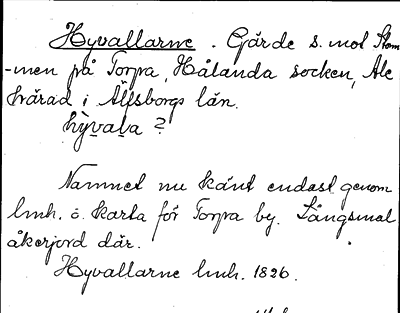 Hyvallarne. Gärde s. mot Stom-
-men på Torpa, Hålanda socken, Ale
härad i Älfsborgs län.
hỳvaḷa ?
Namnet nu känt endast genom
lmh. o. karta för Torpa by. Långsmal
åkerjord där.
Hyvallarne lmh. 1826.